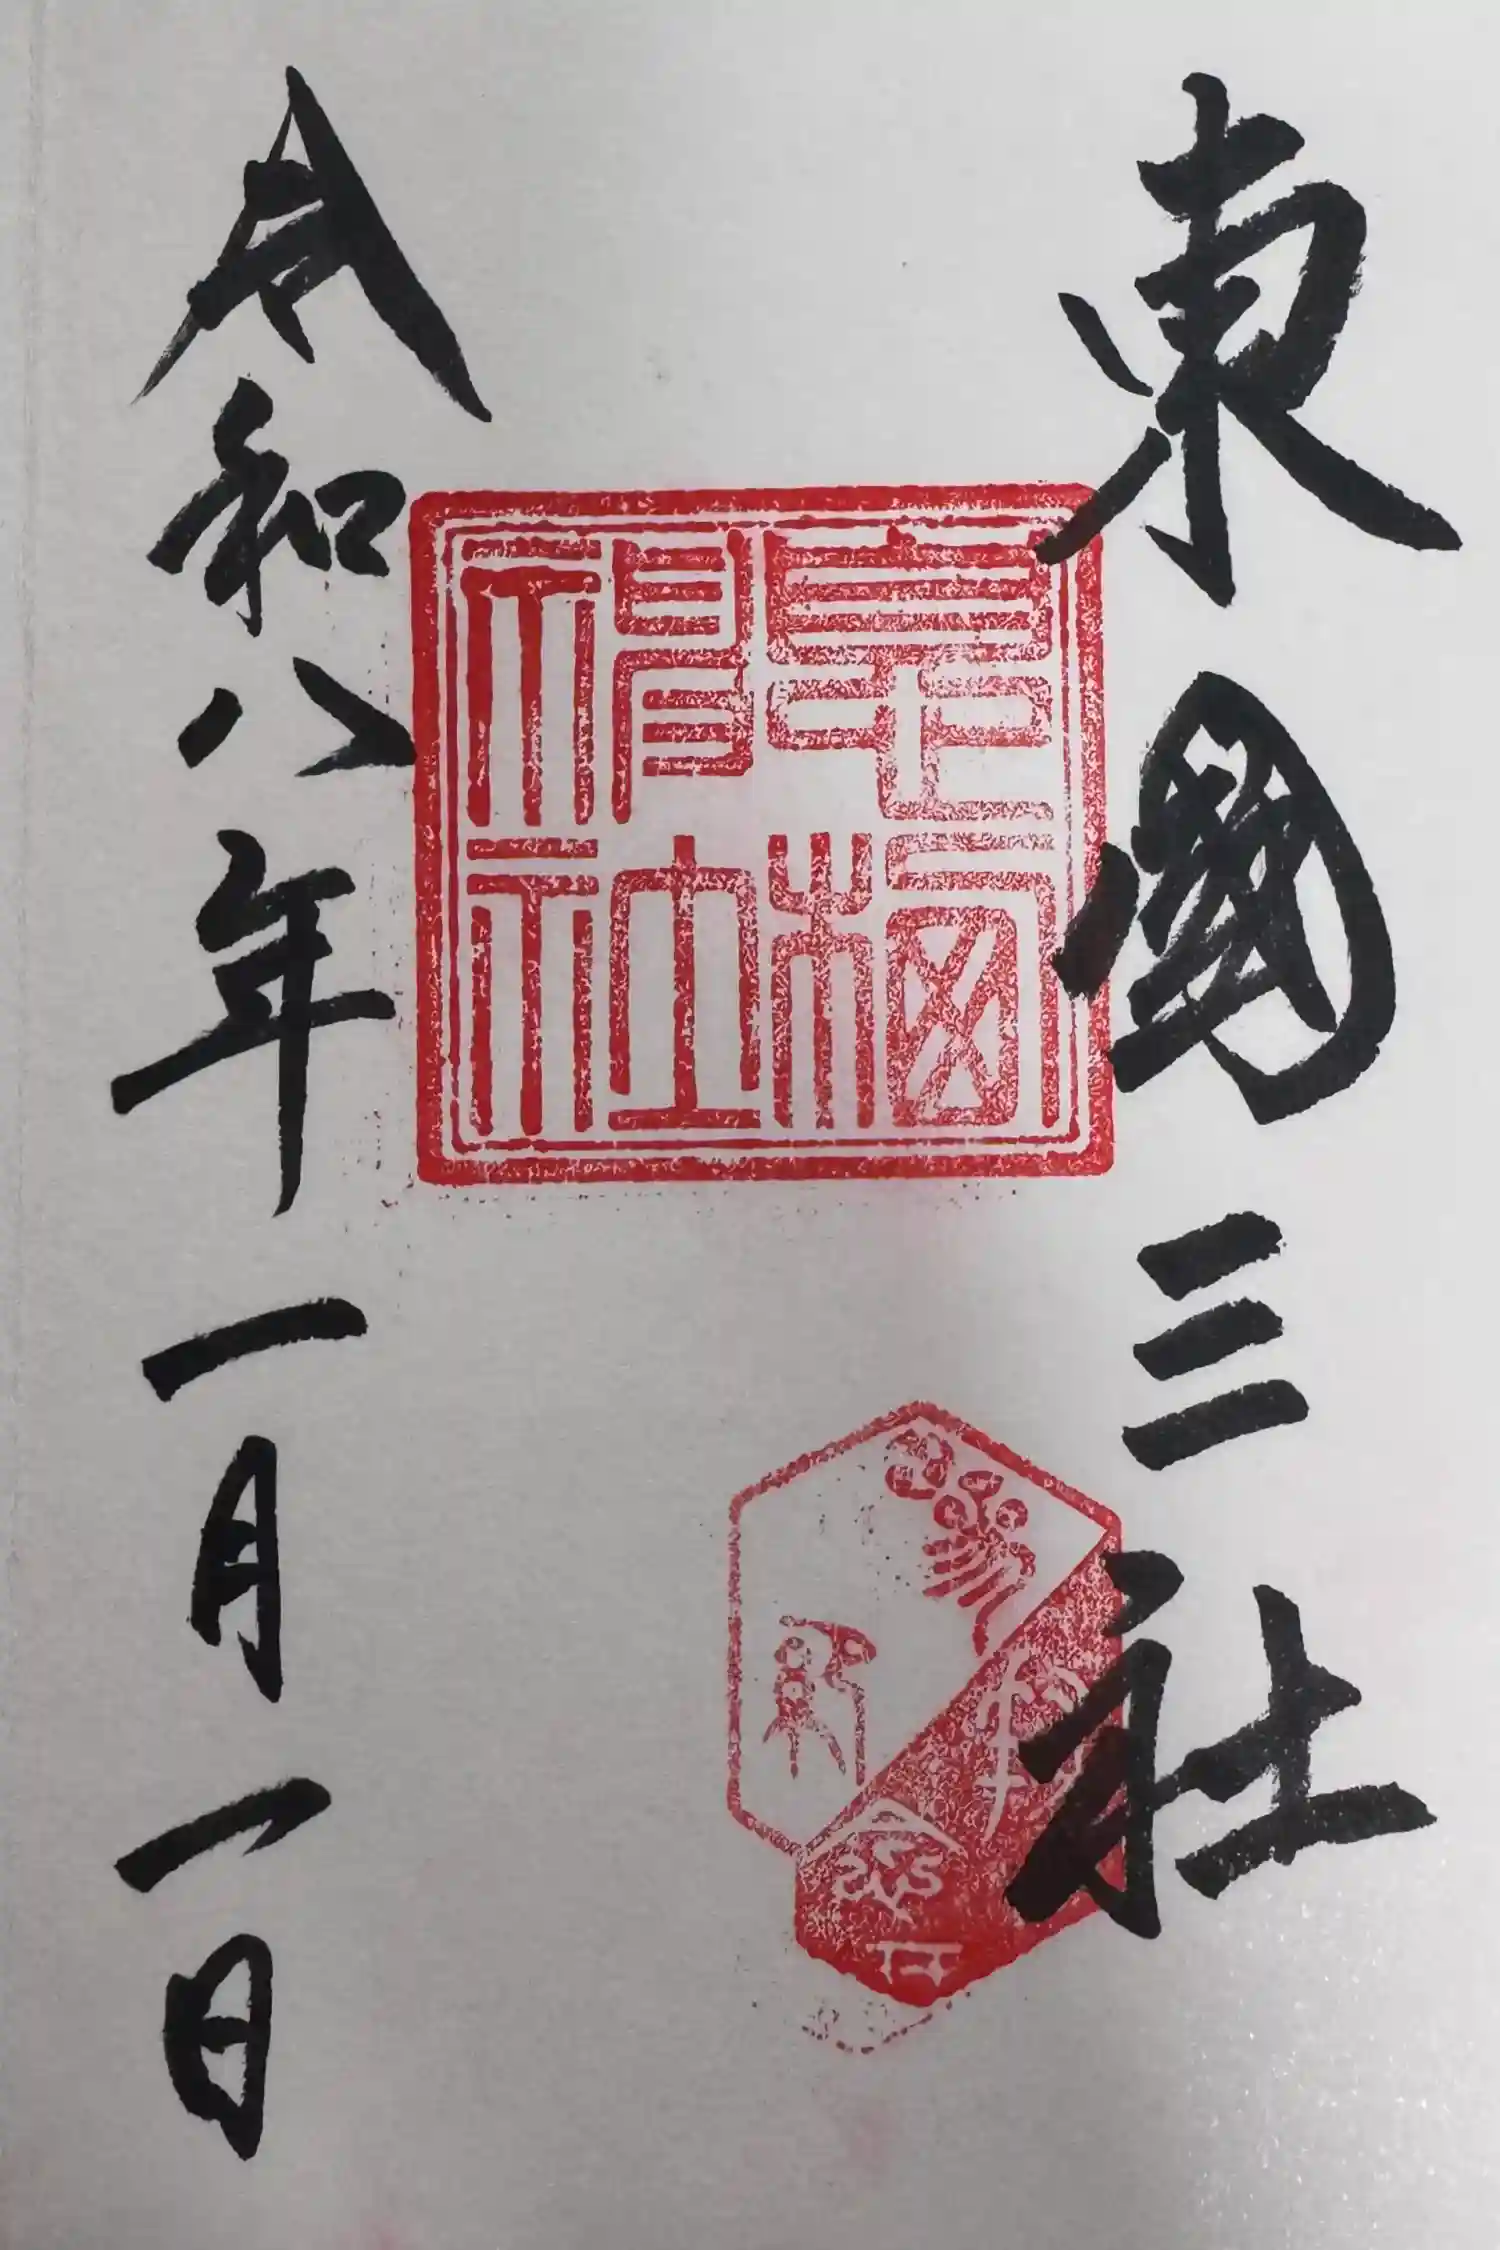 東國三社
息栖
神社
令和八年一月一日